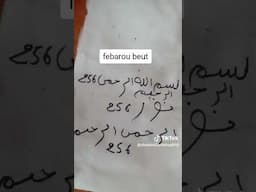 febarou beut
بسم الله الرحمن 256
الرحيم
نور 256
الرحمن الرحيم
256
TikTok